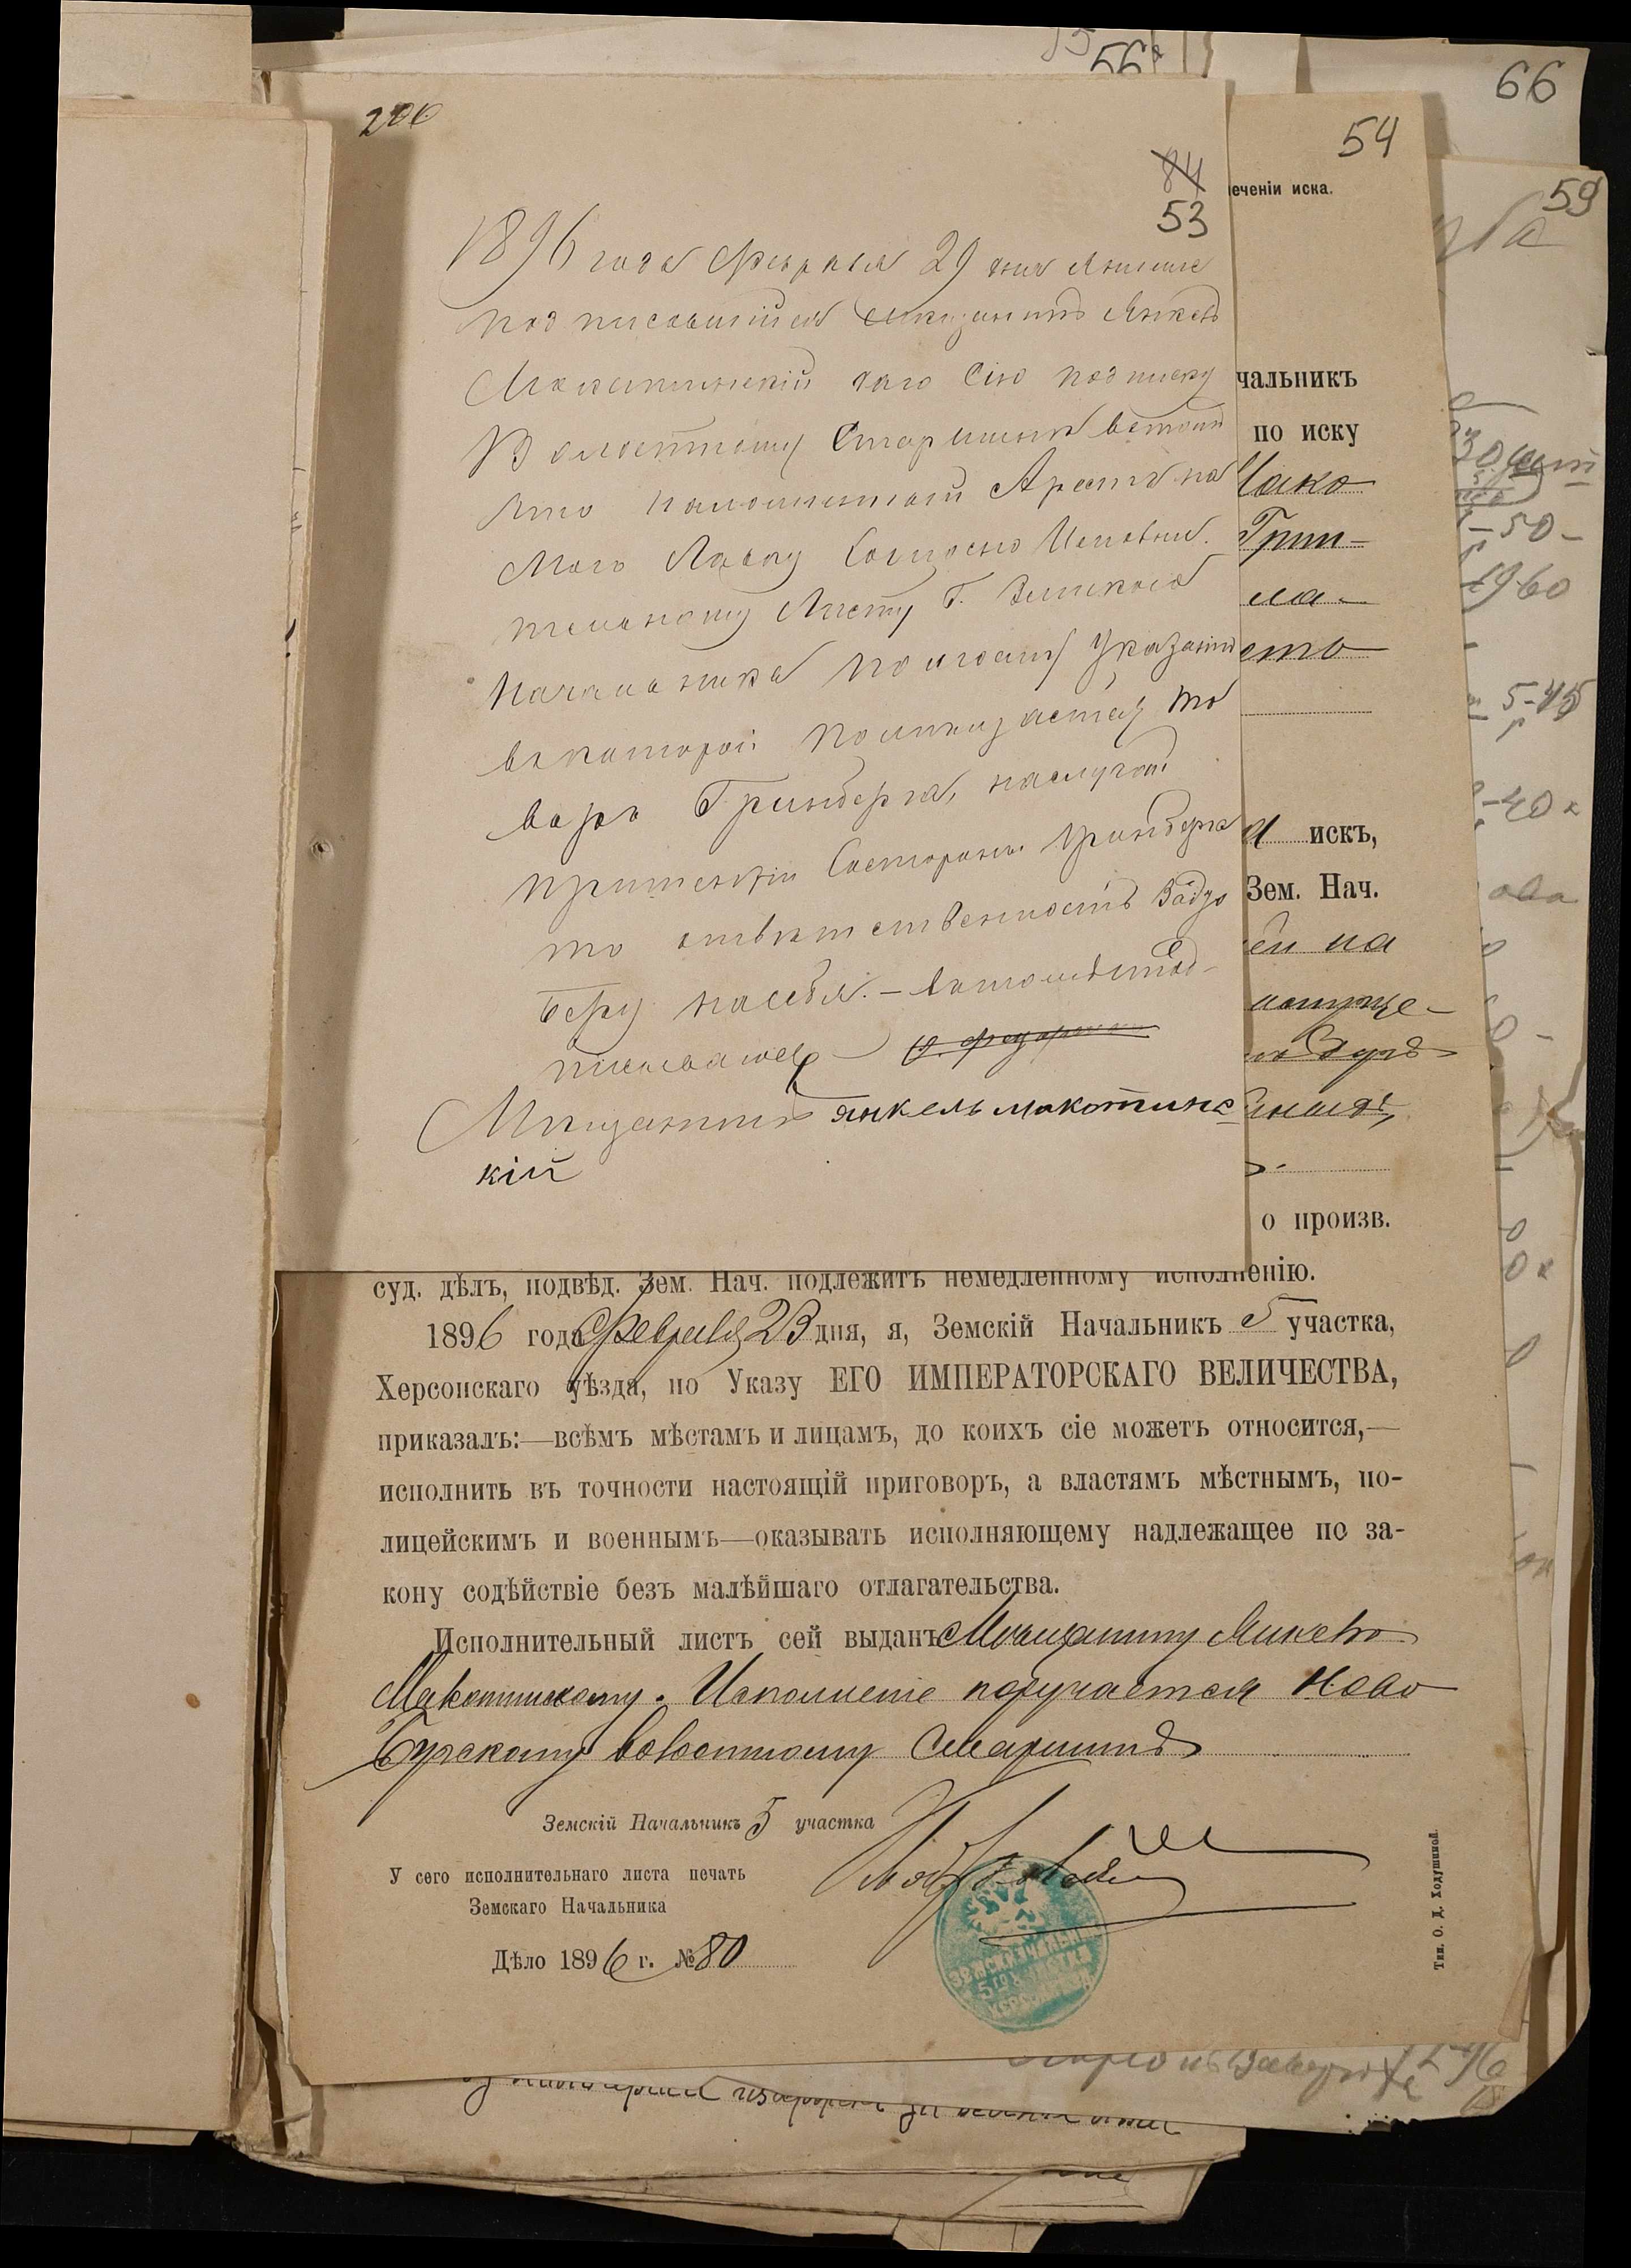 206
66
54
59
84
53
еченіи иска.
1896 года Февраля 29 дня я ниже
подписавшійся мещанинъ Янкель
Макотинскій даю сію подписку
Волостному Старшинѣ въ томъ
что наложенный Арестъ на
мою Лавку Согласно Исполни
тельному Листу Г. Земского
Начальника по моему указанію
въ которой помещается то
варъ Гринберга, на случай
притензіи со стороны Гринберга
то отвѣтственность
беру на себя. — въ томъ и под-
писываюсь
Мещанинъ Янкель Макотинс
кій
чальникъ
по иску
Мако
Грин-
ла-
ето
а искъ,
Зем. Нач.
ей на
о произв.
суд. дѣлъ, подвѣд. Зем. Нач. подлежитъ немедленному исполненію.
1896 года Февраля 23 дня, я, Земскій Начальникъ 5 участка,
Херсонскаго уѣзда, по Указу ЕГО ИМПЕРАТОРСКАГО ВЕЛИЧЕСТВА,
приказалъ:—всѣмъ мѣстамъ и лицамъ, до коихъ сіе можетъ относится,—
исполнить въ точности настоящій приговоръ, а властямъ мѣстнымъ, по-
лицейскимъ и военнымъ—оказывать исполняющему надлежащее по за-
кону содѣйствіе безъ малѣйшаго отлагательства.
Исполнительный листъ сей выданъ Мещанину Янкелю
Макотинскому. Исполненіе поручается Ново
Бугскому Волостному Старшинѣ
Земскій Начальникъ 5 участка
У сего исполнительнаго листа печать
Земскаго Начальника
Дѣло 1896 г. № 80
Тип. О. Д. Ходушиной.